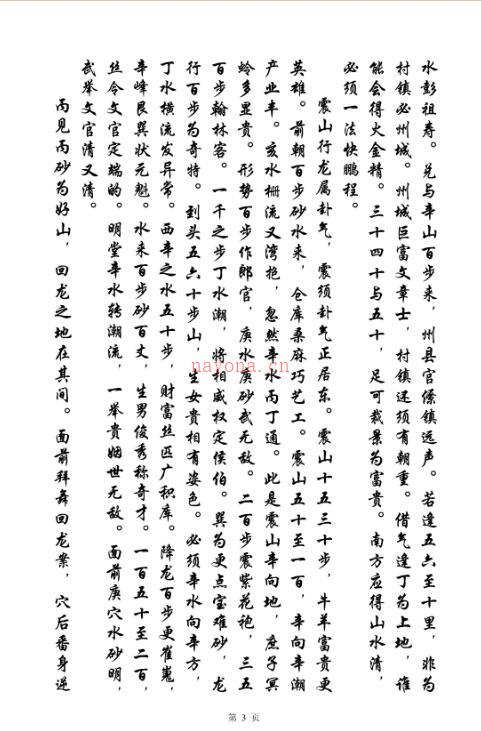 水彭祖寿。兑与辛山百步来，州县官僚镇远声。若逢五六至十里，非为
村镇必州城。州城巨富文章士，村镇还须有朝重。借气逢丁为上地，谁
能会得火金精。三十四十与五十，足可裁景为富贵。南方应得山水清，
必须一法快鹏程。
震山行龙属卦气，震须卦气正居东。震山十五三十步，牛羊富贵更
英雄。前朝百步砂水来，仓库桑麻巧艺工。震山五十至一百，辛向辛潮
产业丰。亥水栅流又湾抱，忽然辛水丙丁通。此是震山辛向地，庶子冥
蛉多显贵。形势百步作郎官，庚水庚砂武无敌。二百步震紫花袍，三五
百步翰林客。一千之步丁水潮，将相威权定侯伯。巽为更点宝雄砂，龙
行百步为奇特。到头五六十步山，生女贵相有姿色。必须辛水向辛方，
丁水横流发异常。酉辛之水五十步，财富丝匹广积库。降龙百步更崔嵬，
辛峰艮巽状元魁。水来百步砂百丈，生男俊秀称奇才。一百五十至二百，
丝令文官定端的。明堂辛水转潮流，一举贵姻世无敌。面前庚穴水砂明，
武举文官清又清。
丙见丙砂为好山，回龙之地在其间。面前拜舞回龙案，穴后番身逆
nayona.cn
第 3 页